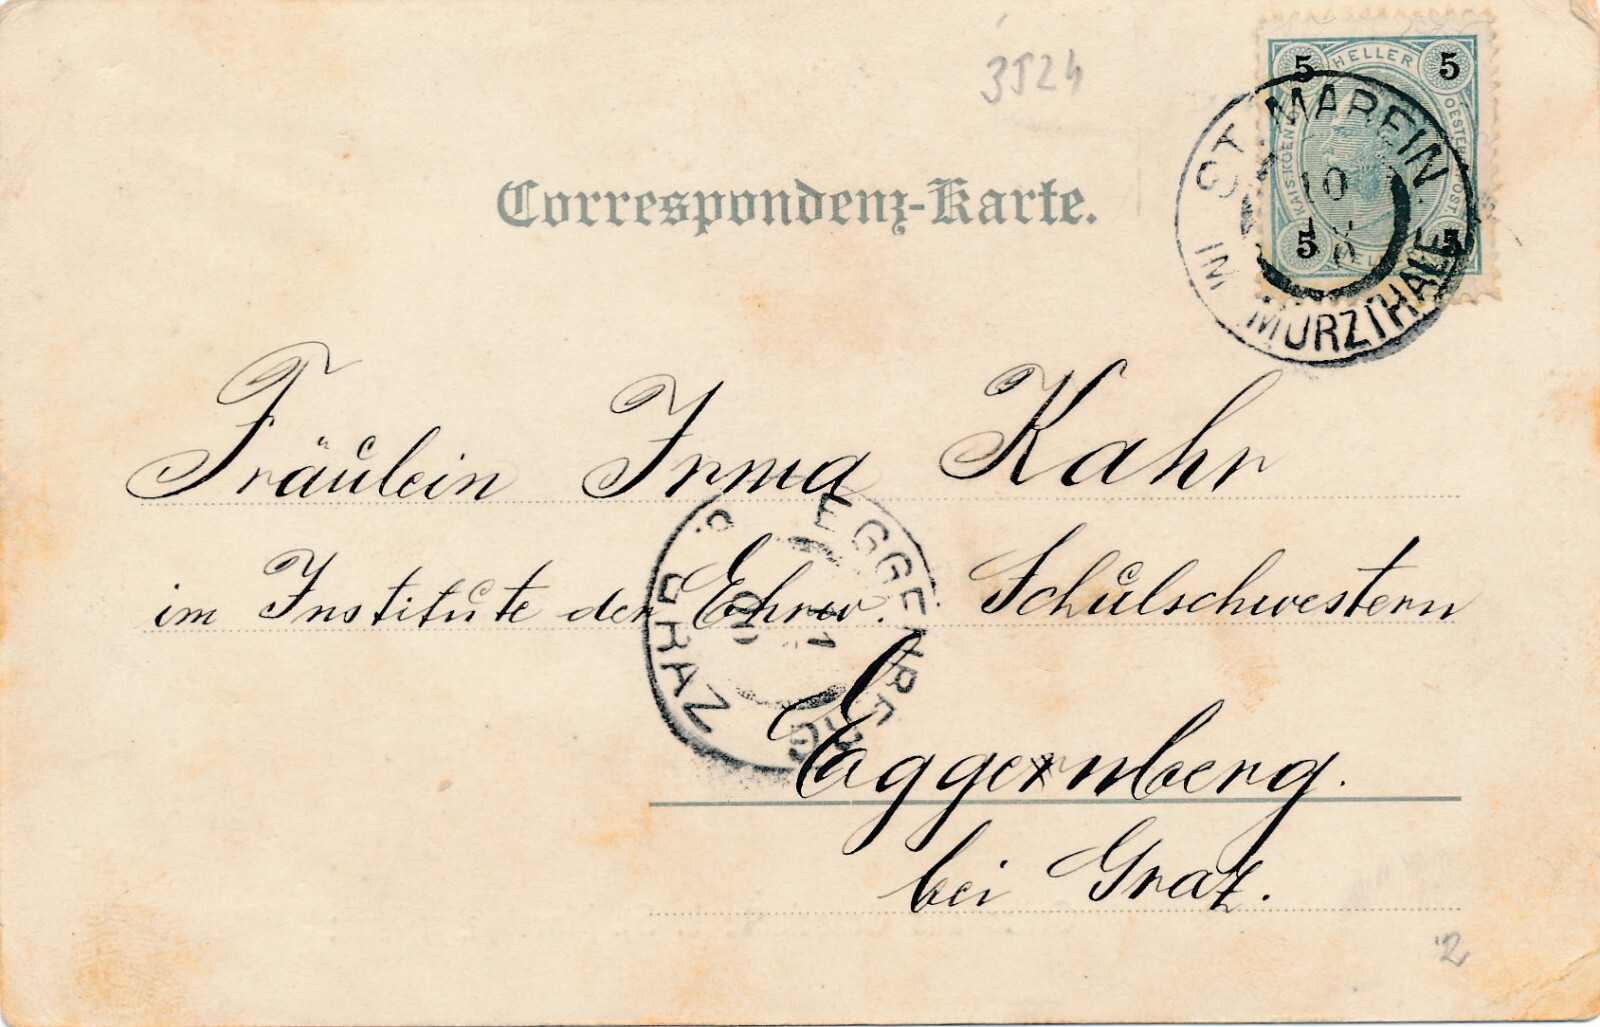 3524
5 HELLER 5
KAIS. KOENI OESTERR. POST.
5 5
ST. MAREIN
IM MÜRZTHALE
10
Correspondenz-Karte.
Fräulein Irma Kahr
im Institute der Ehrw. Schulschwestern
EGGENBERG
GRAZ
Eggenberg.
bei Graz.
2